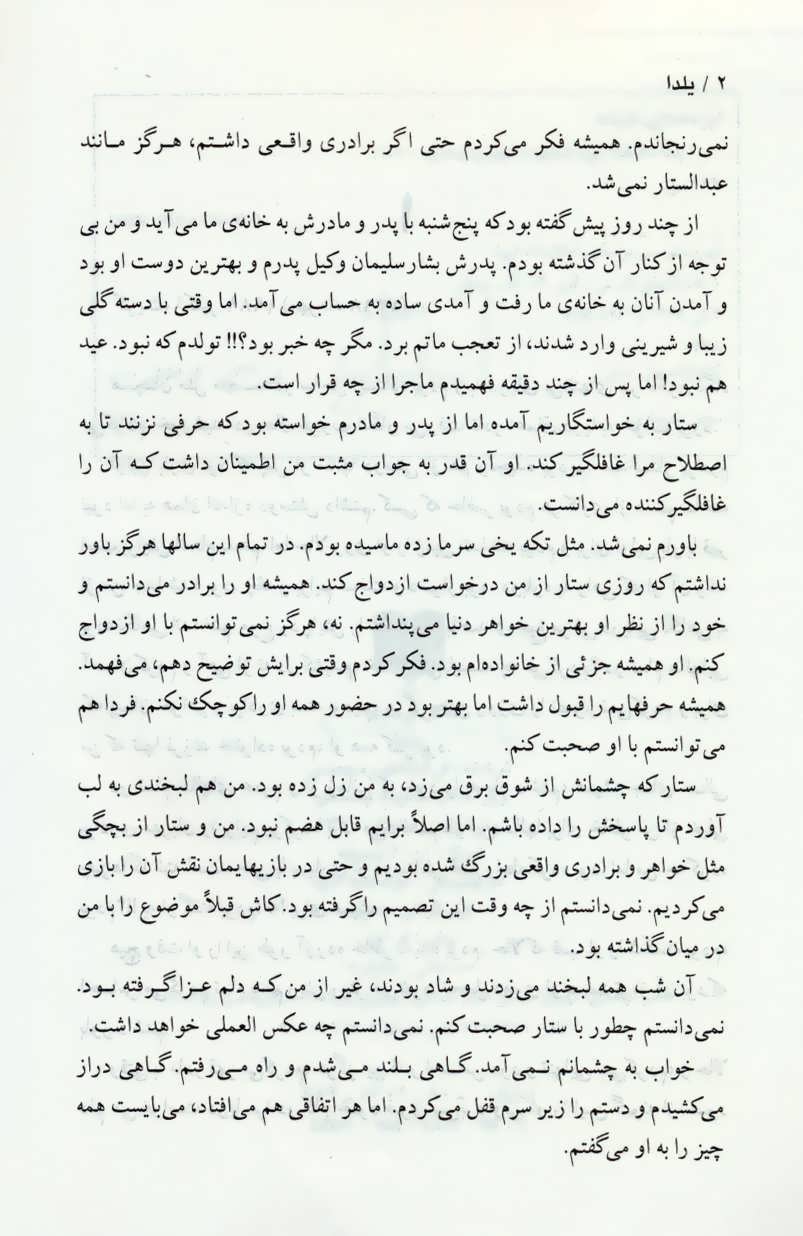 ۲ / یلدا
نمی‌رنجاندم. همیشه فکر می‌کردم حتی اگر برادری واقـعی داشـتم، هـرگز مـانند
عبدالستار نمی‌شد.
از چند روز پیش گفته بود که پنج‌شنبه با پدر و مادرش به خانه‌ی ما می‌آید و من بی
توجه از کنار آن گذشته بودم. پدرش بشارسلیمان وکیل پدرم و بهترین دوست او بود
و آمدن آنان به خانه‌ی ما رفت و آمدی ساده به حساب می‌آمد. اما وقتی با دسته گلی
زیبا و شیرینی وارد شدند، از تعجب ماتم برد. مگر چه خبر بود؟!! تولدم که نبود. عید
هم نبود! اما پس از چند دقیقه فهمیدم ماجرا از چه قرار است.
ستار به خواستگاریم آمده اما از پدر و مادرم خواسته بود که حرفی نزنند تا به
اصطلاح مرا غافلگیر کند. او آن قدر به جواب مثبت من اطمینان داشت کـه آن را
غافلگیرکننده می‌دانست.
باورم نمی‌شد. مثل تکه یخی سرما زده ماسیده بودم. در تمام این سالها هرگز باور
نداشتم که روزی ستار از من درخواست ازدواج کند. همیشه او را برادر می‌دانستم و
خود را از نظر او بهترین خواهر دنیا می‌پنداشتم. نه، هرگز نمی‌توانستم با او ازدواج
کنم. او همیشه جزئی از خانواده‌ام بود. فکر کردم وقتی برایش توضیح دهم، می‌فهمد.
همیشه حرفهایم را قبول داشت اما بهتر بود در حضور همه او را کوچک نکنم. فردا هم
می‌توانستم با او صحبت کنم.
ستار که چشمانش از شوق برق می‌زد، به من زل زده بود. من هم لبخندی به لب
آوردم تا پاسخش را داده باشم. اما اصلاً برایم قابل هضم نبود. من و ستار از بچگی
مثل خواهر و برادری واقعی بزرگ شده بودیم و حتی در بازیهایمان نقش آن را بازی
می‌کردیم. نمی‌دانستم از چه وقت این تصمیم را گرفته بود. کاش قبلاً موضوع را با من
در میان گذاشته بود.
آن شب همه لبخند می‌زدند و شاد بودند، غیر از من کـه دلم عـزا گـرفته بـود.
نمی‌دانستم چطور با ستار صحبت کنم. نمی‌دانستم چه عکس العملی خواهد داشت.
خواب به چشمانم نـمی‌آمد. گـاهی بـلند مـی‌شدم و راه مـی‌رفتم. گـاهی دراز
می‌کشیدم و دستم را زیر سرم قفل می‌کردم. اما هر اتفاقی هم می‌افتاد، می‌بایست همه
چیز را به او می‌گفتم.